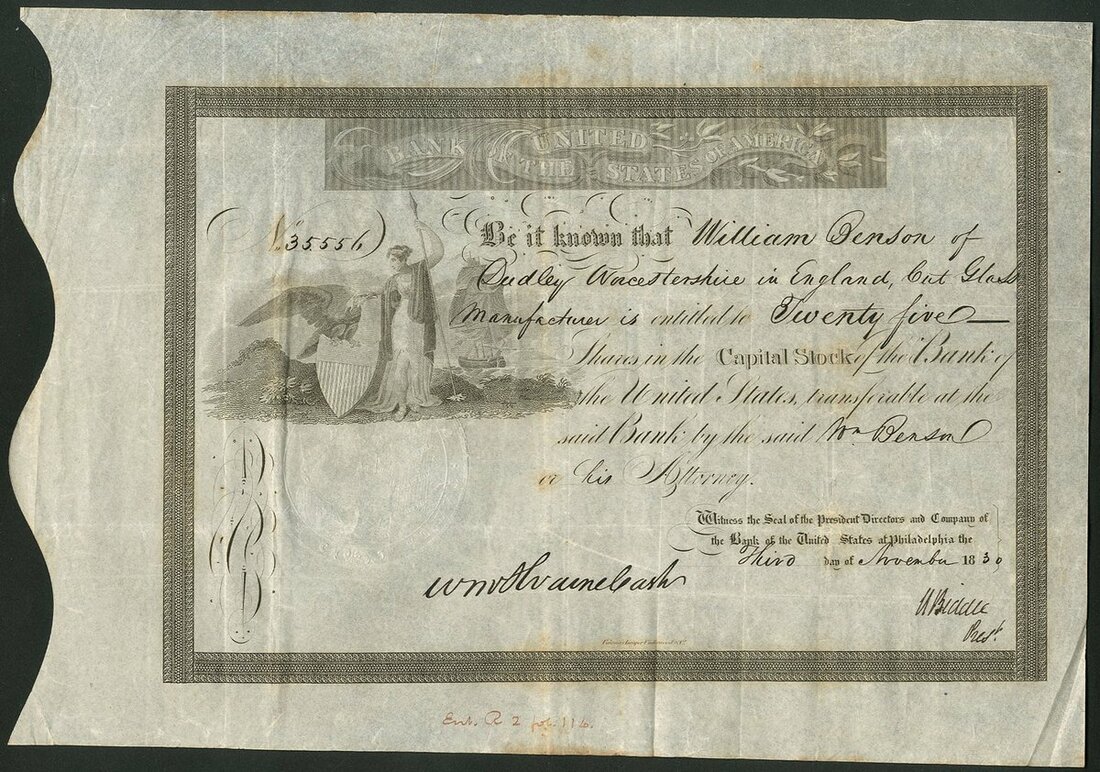 BANK OF THE UNITED STATES OF AMERICA
No. 35556
Be it known that William Benson of
Dudley Worcestershire in England, Cut Glass
Manufacturer is entitled to Twenty five
Shares in the Capital Stock of the Bank of
the United States, transferable at the
said Bank by the said Wm Benson
or his Attorney.
Witness the Seal of the President Directors and Company of
the Bank of the United States at Philadelphia the
Third day of November 1830
Cashr
N Biddle
Prest.
Ent. R 2 fol. 116.